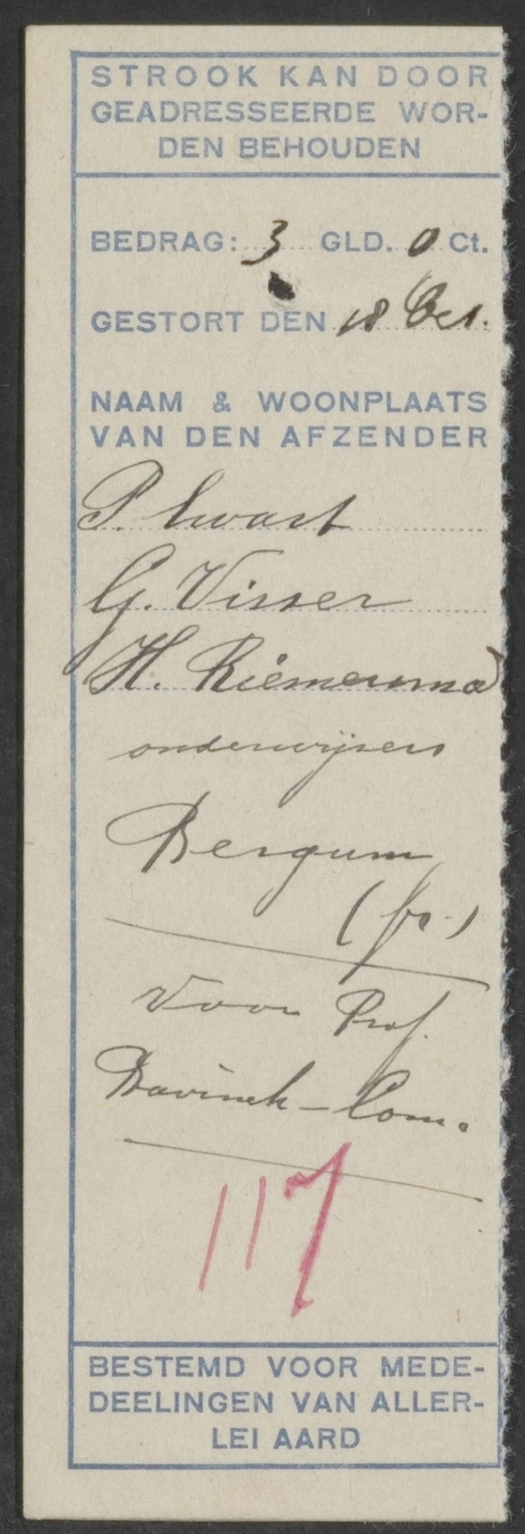 STROOK KAN DOOR
GEADRESSEERDE WOR-
DEN BEHOUDEN
BEDRAG: 3 GLD. 0 Ct.
GESTORT DEN 18 Oct.
NAAM & WOONPLAATS
VAN DEN AFZENDER
P. Zwart
G. Visser
H. Riemersma
onderwijzers
Bergum
(fr.)
voor Prof.
Bavinck-Com.
117
BESTEMD VOOR MEDE-
DEELINGEN VAN ALLER-
LEI AARD